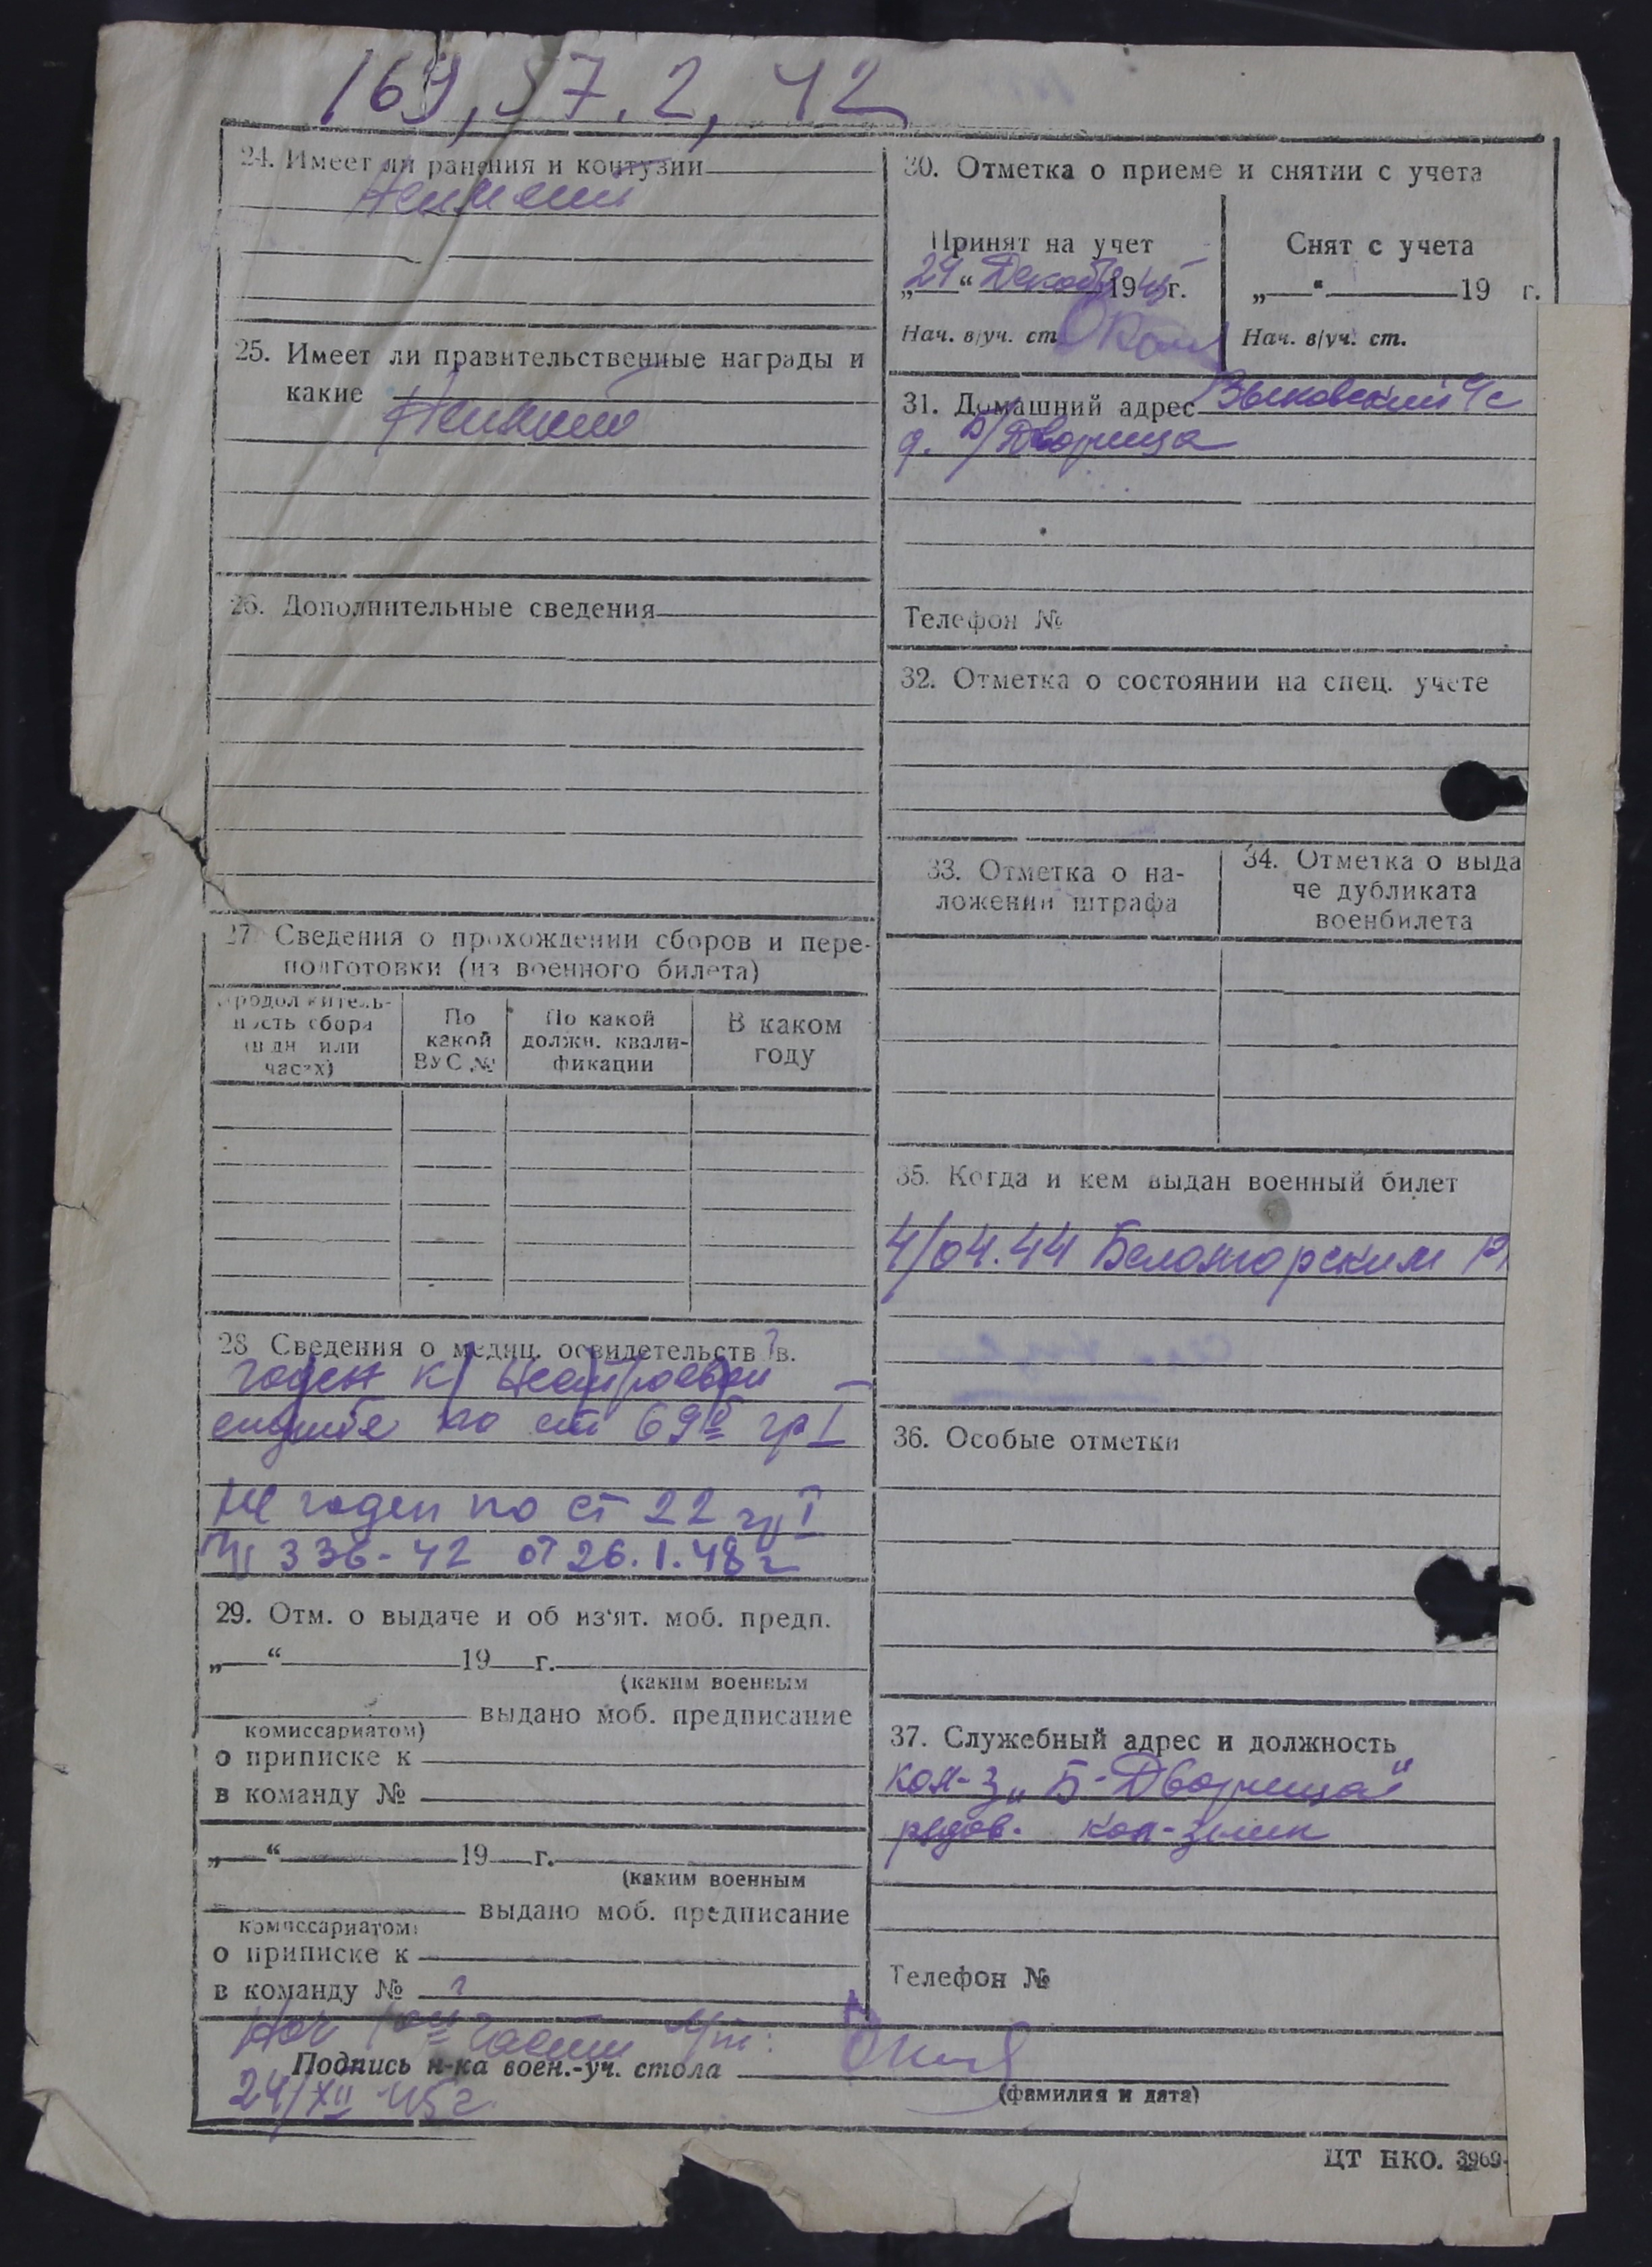 169, 57. 2, 42
24. Имеет ли ранения и контузии
Не имеет
25. Имеет ли правительственные награды и
какие
Не имеет
26. Дополнительные сведения
27. Сведения о прохождении сборов и пере-
подготовки (из военного билета)
Продолжитель-
ность сбора
(в дн или
часах)
По
какой
ВУС №
По какой
должн. квали-
фикации
В каком
году
28 Сведения о медиц. освидетельств в.
годен к/ нестроевой
службе по ст 69 б гр I
Не годен по ст 22 гр I
336-42 от 26.1.48 г
29. Отм. о выдаче и об из'ят. моб. предп.
„ “ 19 г.
(каким военным
выдано моб. предписание
комиссариатом)
о приписке к
в команду №
„ “ 19 г.
(каким военным
выдано моб. предписание
комиссариатом)
о приписке к
в команду №
30. Отметка о приеме и снятии с учета
Принят на учет
„24“ Декабр 1945 г.
Нач. в/уч. ст.
Снят с учета
„ “ 19 г.
Нач. в/уч. ст.
31. Домашний адрес Зыковский с/с
д. Б/Дворища
Телефон №
32. Отметка о состоянии на спец. учете
33. Отметка о на-
ложении штрафа
34. Отметка о выда
че дубликата
военбилета
35. Когда и кем выдан военный билет
4/04.44 Беломорским Р
36. Особые отметки
37. Служебный адрес и должность
кол-з „Б-Дворища“
рядов. кол-зник
Телефон №
Нач части
Подпись н-ка воен.-уч. стола
24/XII 45 г.
(фамилия и дата)
ЦТ НКО. 3969